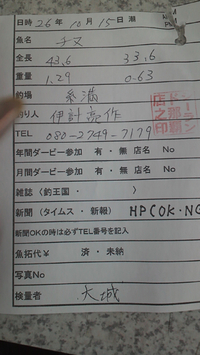 日時 26年 10月 15日 潮
魚名 チヌ
全長 43.6 33.6
重量 1.29 0.63
釣場 糸満
釣り人 伊計 作
TEL 080-2749-7179
年間ダービー参加 有・無 店名 No
月間ダービー参加 有・無 店名 No
雑誌(釣王国・ )
新聞(タイムス・新報) HP OK・NG
新聞OKの時は必ずTEL番号を記入
魚拓代¥ 済・未納
写真No
検量者 大城